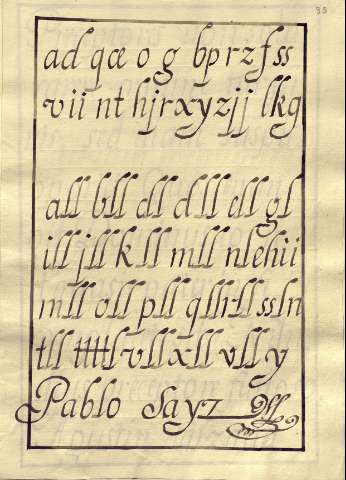 35
ad qœ o g bprzfss
vii nt hjrxyzjj lkg
all bll cll dll ell gl
ill jll k ll mll nlehii
mll oll pll qllrllssln
tll ttttl vll xll vll y
Pablo Sayz